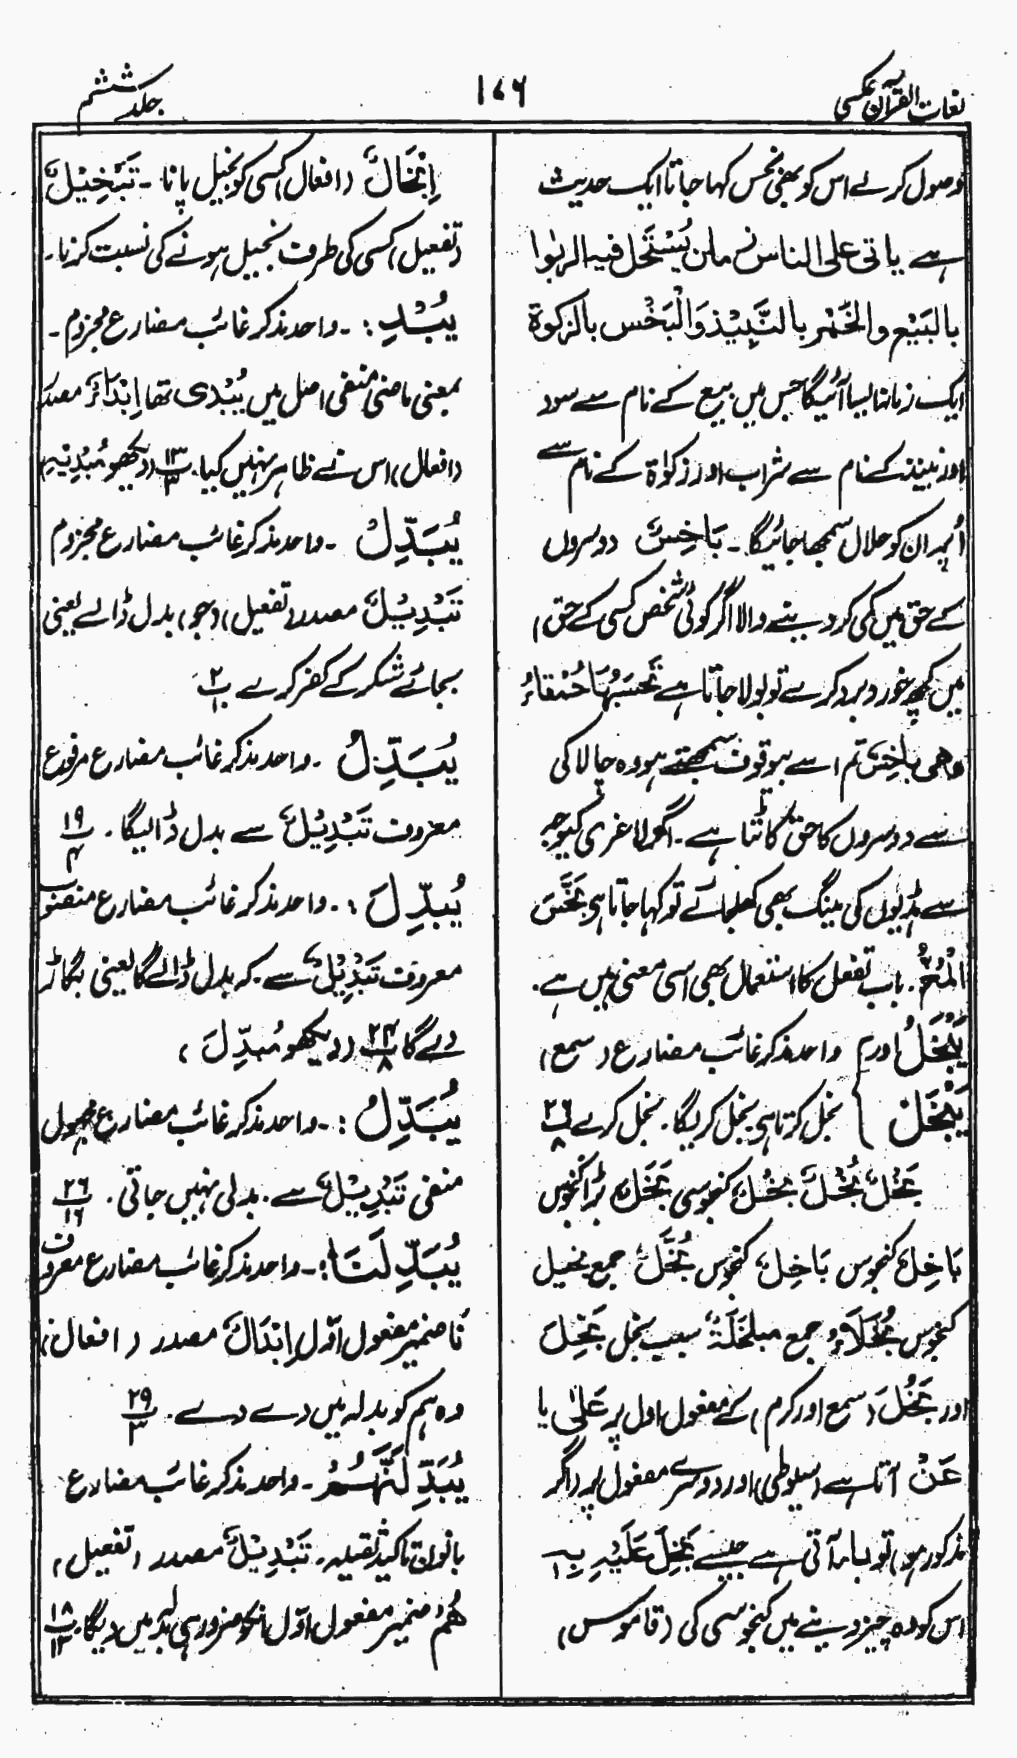 لغات القرآن عکسی
۱۷۶
جلد ششم
وصول کرے اس کو بھی بخس کہا جاتا ایک حدیث
ہے یاتی علی الناس زمان یُسْتَحَل فیہ الربٰوا
بالبَیْع والخَمْر بالنَّبِیْذ وَالْبَخْس بالزکوة
ایک زمانہ ایسا آئیگا جس میں بیع کے نام سے سود
اور نبیذ کے نام سے شراب اور زکوٰة کے نام سے
ان کو حلال سمجھا جائیگا۔ بَاخِسٌ دوسروں
کے حق میں کمی کر دینے والا اگر کوئی شخص کسی کے حق
میں کچھ خورد برد کرے تو بولا جاتا ہے تَحْسَبُهَا حُمْقَاءُ
وهی بَاخِسٌ تم اسے بیوقوف سمجھتے ہو وہ چالاکی
سے دوسروں کا حق کاٹتا ہے۔ اگر لاغری کیوجہ
سے ہڈیوں کی مینگ بھی گھل جائے تو کہا جاتا ہی بَخَّسَ
الْمُخُّ۔ باب تفعل کا استعمال بھی اسی معنی میں ہے۔
یَبْخَلُ اور واحد مذکر غائب مضارع (سمع)
یَبْخَلْ } بخل کرتا ہی بخل کریگا۔ بخل کرے ۲۶/۸
بَخْلٌ بُخُلٌ بَخَلٌ بُخْلٌ کنجوسی بَخَّالٌ بڑا کنجوس
بَاخِلٌ کنجوس بَاخِلٌ کنجوس بُخَّلٌ جمع بخیل
کنجوس بُخَلَاءُ جمع مبخَلَةٌ سبب بخل بَخِلَ
اور بَخُلَ (سمع اور کرم) کے مفعول اول پر عَلٰی یا
عَنْ آتا ہے (سیوطی) اور دوسرے مفعول پر (اگر
مذکور ہو) تو باء آتی ہے جیسے بَخِلَ عَلَیْہِ بِہٖ
اس کو وہ چیز دینے میں کنجوسی کی (قاموس)
اِبْخَالٌ (افعال) کسی کو بخیل پانا۔ تَبْخِیْلٌ
(تفعیل) کسی کی طرف بخیل ہونے کی نسبت کرنا۔
یُبْدِ:۔ واحد مذکر غائب مضارع مجزوم۔
بمعنی ماضی منفی اصل میں یُبْدِی تھا اِبْدَاءٌ مصدر
(افعال) اس نے ظاہر نہیں کیا۔ ۱۳/۳ (دیکھو مُبْدِیْہِ)
یُبَدِّلْ ۔ واحد مذکر غائب مضارع مجزوم
تَبْدِیْلٌ مصدر (تفعیل) (جو) بدل ڈالے یعنی
بجائے شکر کے کفر کرے ۲/۱۰
یُبَدِّلُ ۔ واحد مذکر غائب مضارع مرفوع
معروف تَبْدِیْلٌ سے بدل ڈالیگا۔ ۱۹/۴
یُبَدِّلَ :۔ واحد مذکر غائب مضارع منصوب
معروف تَبْدِیْلٌ سے۔ کہ بدل ڈالے گا یعنی بگاڑ
دے گا ۲۴/۸ (دیکھو مُبَدِّلَ)
یُبَدَّلُ :۔ واحد مذکر غائب مضارع مجہول
منفی تَبْدِیْلٌ سے۔ بدلی نہیں جاتی۔ ۲۶/۱۶
یُبْدِلَنَا :۔ واحد مذکر غائب مضارع معروف
نَا ضمیر مفعول اوّل اِبْدَالٌ مصدر (افعال)
وہ ہم کو بدلہ میں دے دے۔ ۲۹/۳
یُبَدِّلَنَّهُمْ ۔ واحد مذکر غائب مضارع
بانون تاکید ثقیلہ۔ تَبْدِیْلٌ مصدر (تفعیل)
هُمْ ضمیر مفعول اوّل انکو ضرور ہی بدلہ میں دیگا۔ ۱۸/۱۳